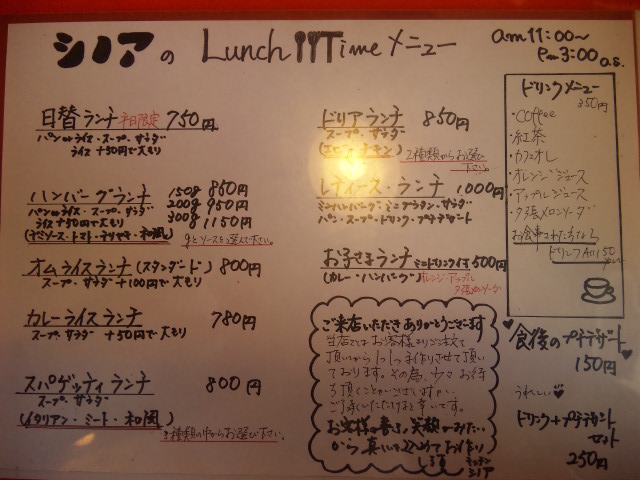 シノアの Lunch Time メニュー
am11:00～
Pm3:00 o.s.
日替ランチ 平日限定 750円
パンorライス・スープ・サラダ
ライス+50円で大もり
ハンバーグランチ 150g 850円
パンorライス・スープ・サラダ 200g 950円
ライス+50円で大もり 300g 1150円
(デミソース・トマト・テリヤキ・和風) gとソースをお選び下さい。
オムライスランチ(スタンダード) 800円
スープ・サラダ +100円で大もり
カレーライスランチ 780円
スープ・サラダ +50円で大もり
スパゲッティランチ 800円
スープ・サラダ
(イタリアン・ミート・和風)
3種類の中からお選び下さい。
ドリアランチ 850円
スープ・サラダ
(エビ・チキン) 2種類からお選び下さい。
レディース・ランチ 1000円
ミニハンバーグ・ミニグラタン・サラダ
パン・スープ・ドリンク・プチデザート
お子さまランチ ミニドリンク付 500円
(カレー・ハンバーグ) オレンジ・アップル
夕張メロンソーダ
ご来店いただきありがとうございます
当店ではお客様よりご注文を
頂いてから1つ1つ手作りさせて頂い
ております。その為、少々お待
ち頂くことがございますが、
ご了承いただけると幸いです。
お客様の喜ぶ笑顔がみたい
から真心を込めてお作り
します キッチン
シノア
ドリンクメニュー
350円
・coffee
・紅茶
・カフェオレ
・オレンジジュース
・アップルジュース
・夕張メロンソーダ
お食事された方なら
ドリンクAll 150円
食後のプチデザート
150円
うれしい
ドリンク+プチデザート
セット
250円